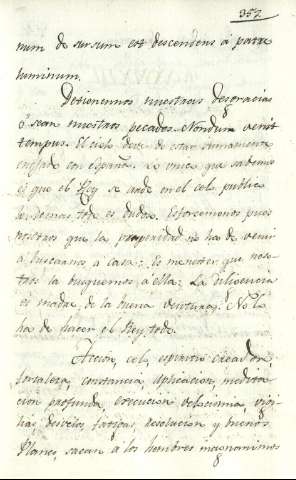 357
num de sursum est descendens á patre
luminum.
Detienennos nuestras desgracias
ó sean nuestros pecados. Nondum venit
tempus. El cielo deve de estar sumamente
enojado con españa. Lo unico que sabemos
es que el Rey se arde en el celo publico
lo demas todo es dudoso. Esforcemonos pues
nosotros que la prosperidad no ha de venir
á buscarnos a casa: es menester que noso-
tros la busquemos á ella: La diligencia
es madre de la buena ventura. No lo
ha de hacer el Rey todo.
Accion, celo, espiritu creador,
fortaleza, constancia, aplicacion, medita-
cion profunda, execucion velocisima, vigi-
lias, desvelos, fatigas, resolucion y buenos
Planes, sacan á los hombres magnanimos